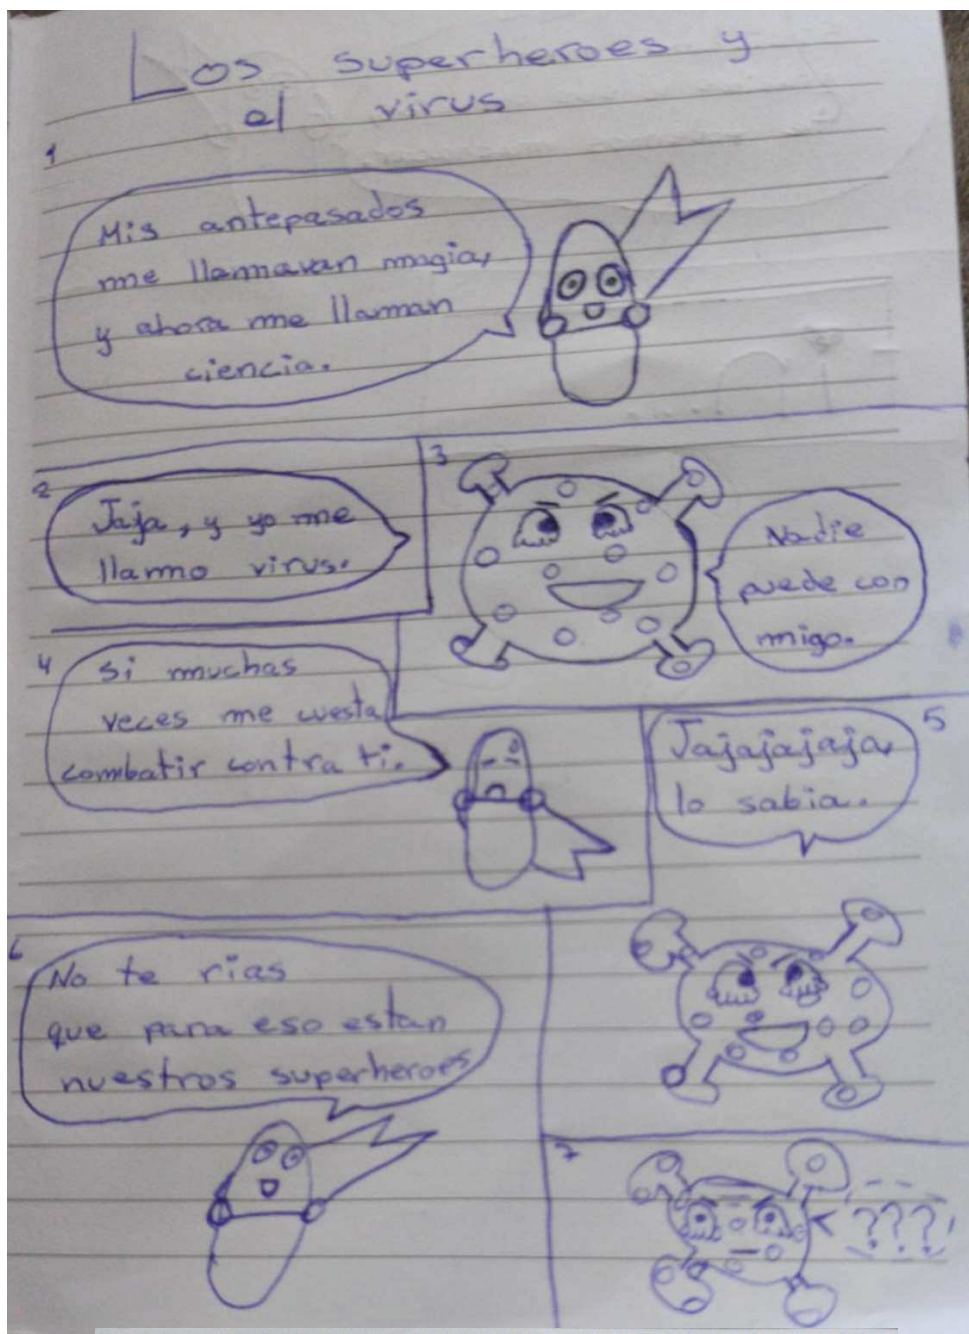 Los superheroes y
el virus
1
Mis antepasados
me llamavan magia,
y ahora me llaman
ciencia.
2
Jaja, y yo me
llamo virus.
3
Nadie
puede con
migo.
4
Si muchas
veces me cuesta
combatir contra ti.
5
Jajajajaja,
lo sabia.
6
No te rias
que para eso estan
nuestros superheroes
7
???